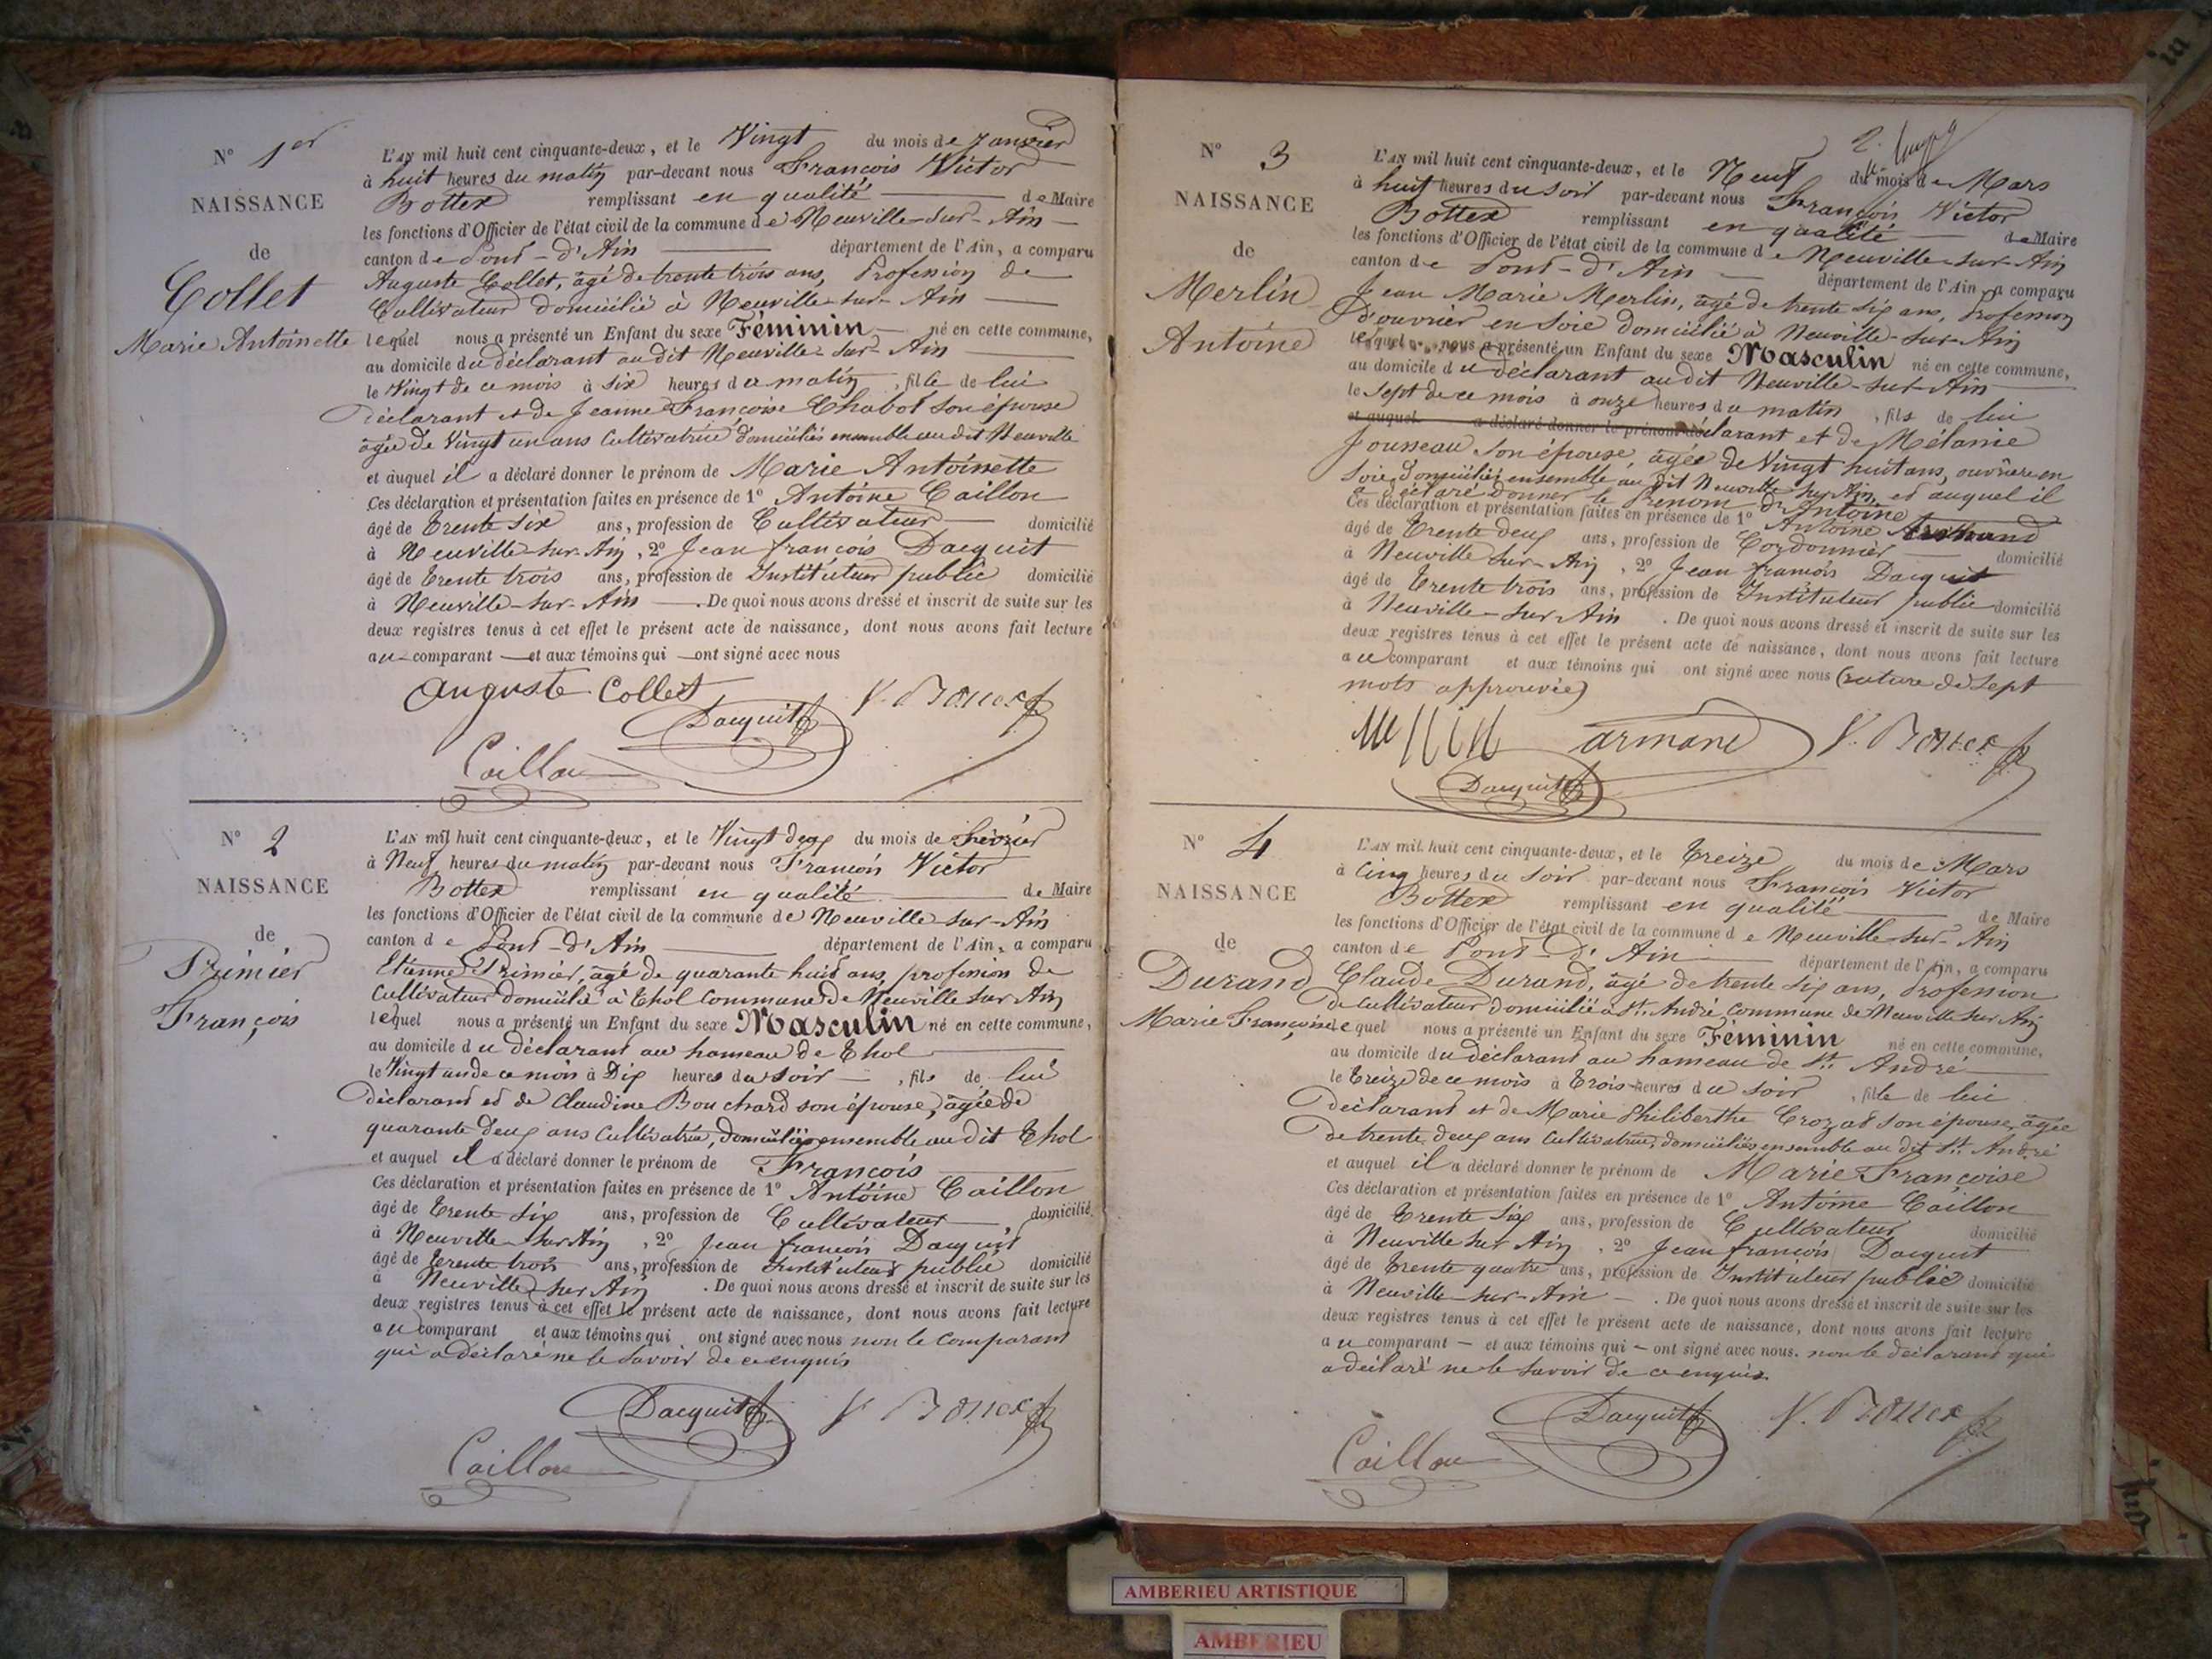 N° 1er
NAISSANCE
de
Collet
Marie Antoinette
L'AN mil huit cent cinquante-deux, et le Vingt du mois de Janvier
à huit heures du matin par-devant nous François Victor
Bottex remplissant en qualité de Maire
les fonctions d'Officier de l'état civil de la commune de Neuville-sur-Ain
canton de Pont-d'Ain département de l'Ain, a comparu
Auguste Collet, âgé de trente trois ans, Profession de
Cultivateur domicilié à Neuville-sur-Ain
lequel nous a présenté un Enfant du sexe Féminin né en cette commune,
au domicile du déclarant au dit Neuville-sur-Ain
le Vingt de ce mois à six heures du matin, fille de lui
déclarant et de Jeanne Françoise Chabot son épouse
âgée de Vingt un ans Cultivatrice domiciliés ensemble au dit Neuville
et auquel il a déclaré donner le prénom de Marie Antoinette
Ces déclaration et présentation faites en présence de 1° Antoine Caillon
âgé de trente six ans, profession de Cultivateur domicilié
à Neuville-sur-Ain, 2° Jean françois Dacquit
âgé de trente trois ans, profession de Instituteur public domicilié
à Neuville-sur-Ain. De quoi nous avons dressé et inscrit de suite sur les
deux registres tenus à cet effet le présent acte de naissance, dont nous avons fait lecture
au comparant et aux témoins qui ont signé avec nous
auguste collet
Dacquit V. Bottex
Caillon
N° 2
NAISSANCE
de
Primier
François
L'AN mil huit cent cinquante-deux, et le Vingt deux du mois de Février
à Neuf heures du matin par-devant nous François Victor
Bottex remplissant en qualité de Maire
les fonctions d'Officier de l'état civil de la commune de Neuville sur-Ain
canton de Pont-d'Ain département de l'Ain, a comparu
Etienne Primier, âgé de quarante huit ans, profession de
Cultivateur domicilié à Thol Commune de Neuville sur Ain
lequel nous a présenté un Enfant du sexe Masculin né en cette commune,
au domicile du déclarant au hameau de Thol
le Vingt un de ce mois à Dix heures du soir, fils de lui
déclarant et de Claudine Bouchard son épouse, âgée de
quarante deux ans Cultivatrice, domiciliés ensemble au dit Thol
et auquel il a déclaré donner le prénom de François
Ces déclaration et présentation faites en présence de 1° Antoine Caillon
âgé de trente six ans, profession de Cultivateur, domicilié
à Neuville sur Ain, 2° Jean françois Dacquit
âgé de trente trois ans, profession de Instituteur public domicilié
à Neuville sur Ain. De quoi nous avons dressé et inscrit de suite sur les
deux registres tenus à cet effet le présent acte de naissance, dont nous avons fait lecture
au comparant et aux témoins qui ont signé avec nous non le comparant
qui a déclaré ne le savoir de ce enquis
Dacquit V. Bottex
Caillon
N° 3
NAISSANCE
de
Merlin
Antoine
L'AN mil huit cent cinquante-deux, et le Neuf du mois de Mars
à huit heures du soir par-devant nous François Victor
Bottex remplissant en qualité de Maire
les fonctions d'Officier de l'état civil de la commune de Neuville-sur-Ain
canton de Pont-d'Ain département de l'Ain, a comparu
Jean Marie Merlin, âgé de trente six ans, Profession
d'ouvrier en Soie domicilié à Neuville-sur-Ain
lequel nous a présenté un Enfant du sexe Masculin né en cette commune,
au domicile du déclarant au dit Neuville-sur-Ain
le Sept de ce mois à onze heures du matin, fils de lui
et auquel a déclaré donner le prénom déclarant et de Mélanie
Jousseau son épouse, âgée de Vingt huit ans, ouvrière en
Soie, domiciliés ensemble au dit Neuville sur Ain, et auquel il
a déclaré donner le Prénom d'Antoine
Ces déclaration et présentation faites en présence de 1° Antoine
âgé de trente deux ans, profession de Cordonnier domicilié
à Neuville sur-Ain, 2° Jean françois Dacquit
âgé de trente trois ans, profession de Instituteur public domicilié
à Neuville-sur Ain. De quoi nous avons dressé et inscrit de suite sur les
deux registres tenus à cet effet le présent acte de naissance, dont nous avons fait lecture
au comparant et aux témoins qui ont signé avec nous (rature de Sept
mots approuvée)
armand V. Bottex
Dacquit
N° 4
NAISSANCE
de
Durand
Marie Françoise
L'AN mil huit cent cinquante-deux, et le treize du mois de Mars
à Cinq heures du soir par-devant nous François Victor
Bottex remplissant en qualité de Maire
les fonctions d'Officier de l'état civil de la commune de Neuville-sur-Ain
canton de Pont-d'Ain département de l'Ain, a comparu
Claude Durand, âgé de trente six ans, Profession
de Cultivateur domicilié à St. André Commune de Neuville sur Ain
lequel nous a présenté un Enfant du sexe Féminin né en cette commune,
au domicile du déclarant au hameau de St. André
le treize de ce mois à trois heures du soir, fille de lui
déclarant et de Marie Philiberthe Crozat son épouse, âgée
de trente deux ans Cultivatrice, domiciliés ensemble au dit St. André
et auquel il a déclaré donner le prénom de Marie Françoise
Ces déclaration et présentation faites en présence de 1° Antoine Caillon
âgé de trente six ans, profession de Cultivateur domicilié
à Neuville sur Ain, 2° Jean françois Dacquit
âgé de trente quatre ans, profession de Instituteur public domicilié
à Neuville-sur-Ain. De quoi nous avons dressé et inscrit de suite sur les
deux registres tenus à cet effet le présent acte de naissance, dont nous avons fait lecture
au comparant et aux témoins qui ont signé avec nous. non le déclarant qui
a déclaré ne le savoir de ce enquis.
Dacquit V. Bottex
Caillon
AMBERIEU ARTISTIQUE
AMBERIEU